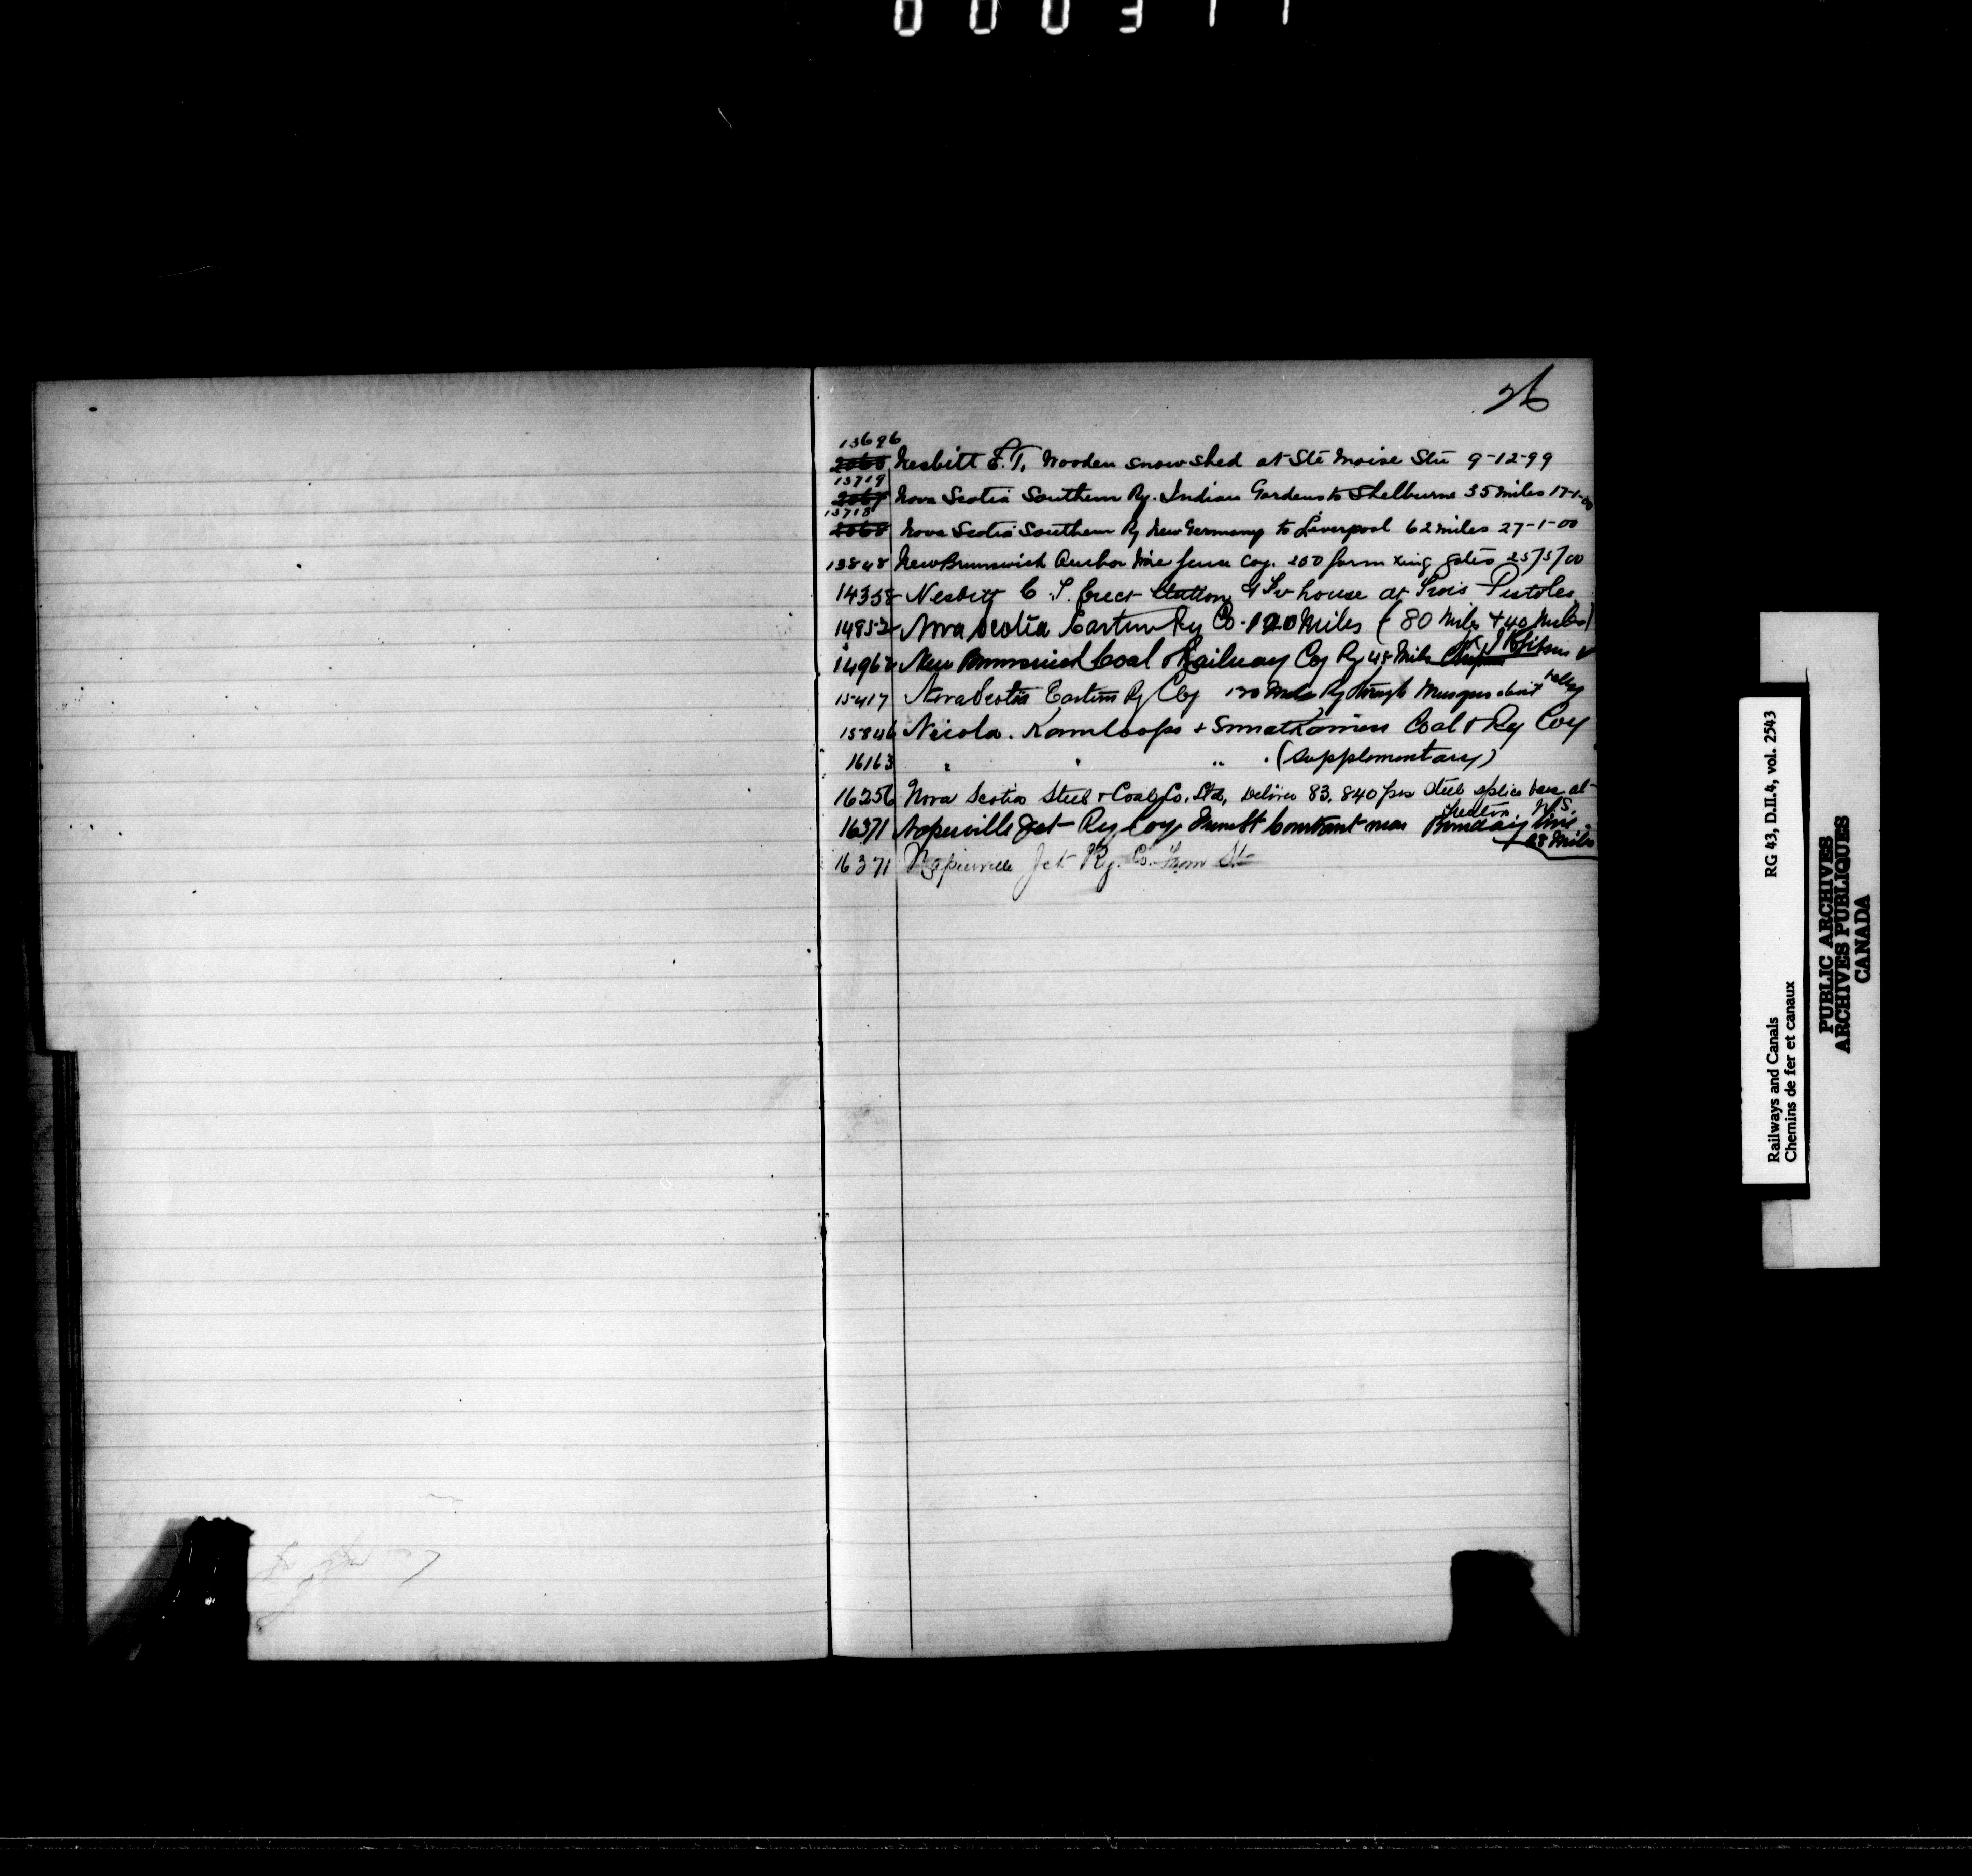 26
13696
2066 Nesbitt E.T. Wooden snow shed at Ste Moise Stn 9-12-99
13719
2067 Nova Scotia Southern Ry. Indian Gardens to Shelburne 35 miles 17-1-00
13718
2068 Nova Scotia Southern Ry New Germany to Liverpool 62 miles 27-1-00
13848 New Brunswick Anchor Wire fence Coy. 200 farm xing gates 25/5/00
14358 Nesbitt E.T. Erect Station & house at Trois Pistoles
14952 Nova Scotia Eastern Ry Co. 120 Miles (80 Miles + 40 Miles)
1496 New Brunswick Coal & Railway Coy Ry 45 Miles
15417 Nova Scotia Eastern Ry Coy 120 Miles Ry through Musquodoboit Valley
15846 Nicola. Kamloops & Similkameen Coal & Ry Coy
16163 " " " . (Supplementary)
16256 Nova Scotia Steel & Coal Co. Ltd, Deliver 83,840 prs steel splice bars at
Trenton N.S.
16371 Napierville Jct Ry Coy from St Constant near Boundary line.
28 Miles
16371 Napierville Jct Ry. Co. from St
RG 43, D.II.4, vol. 2543
Railways and Canals
Chemins de fer et canaux
PUBLIC ARCHIVES
ARCHIVES PUBLIQUES
CANADA